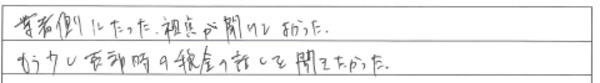 業者側にたった、視点が聞けてよかった。
もう少し売却時の税金の話しを聞きたかった。